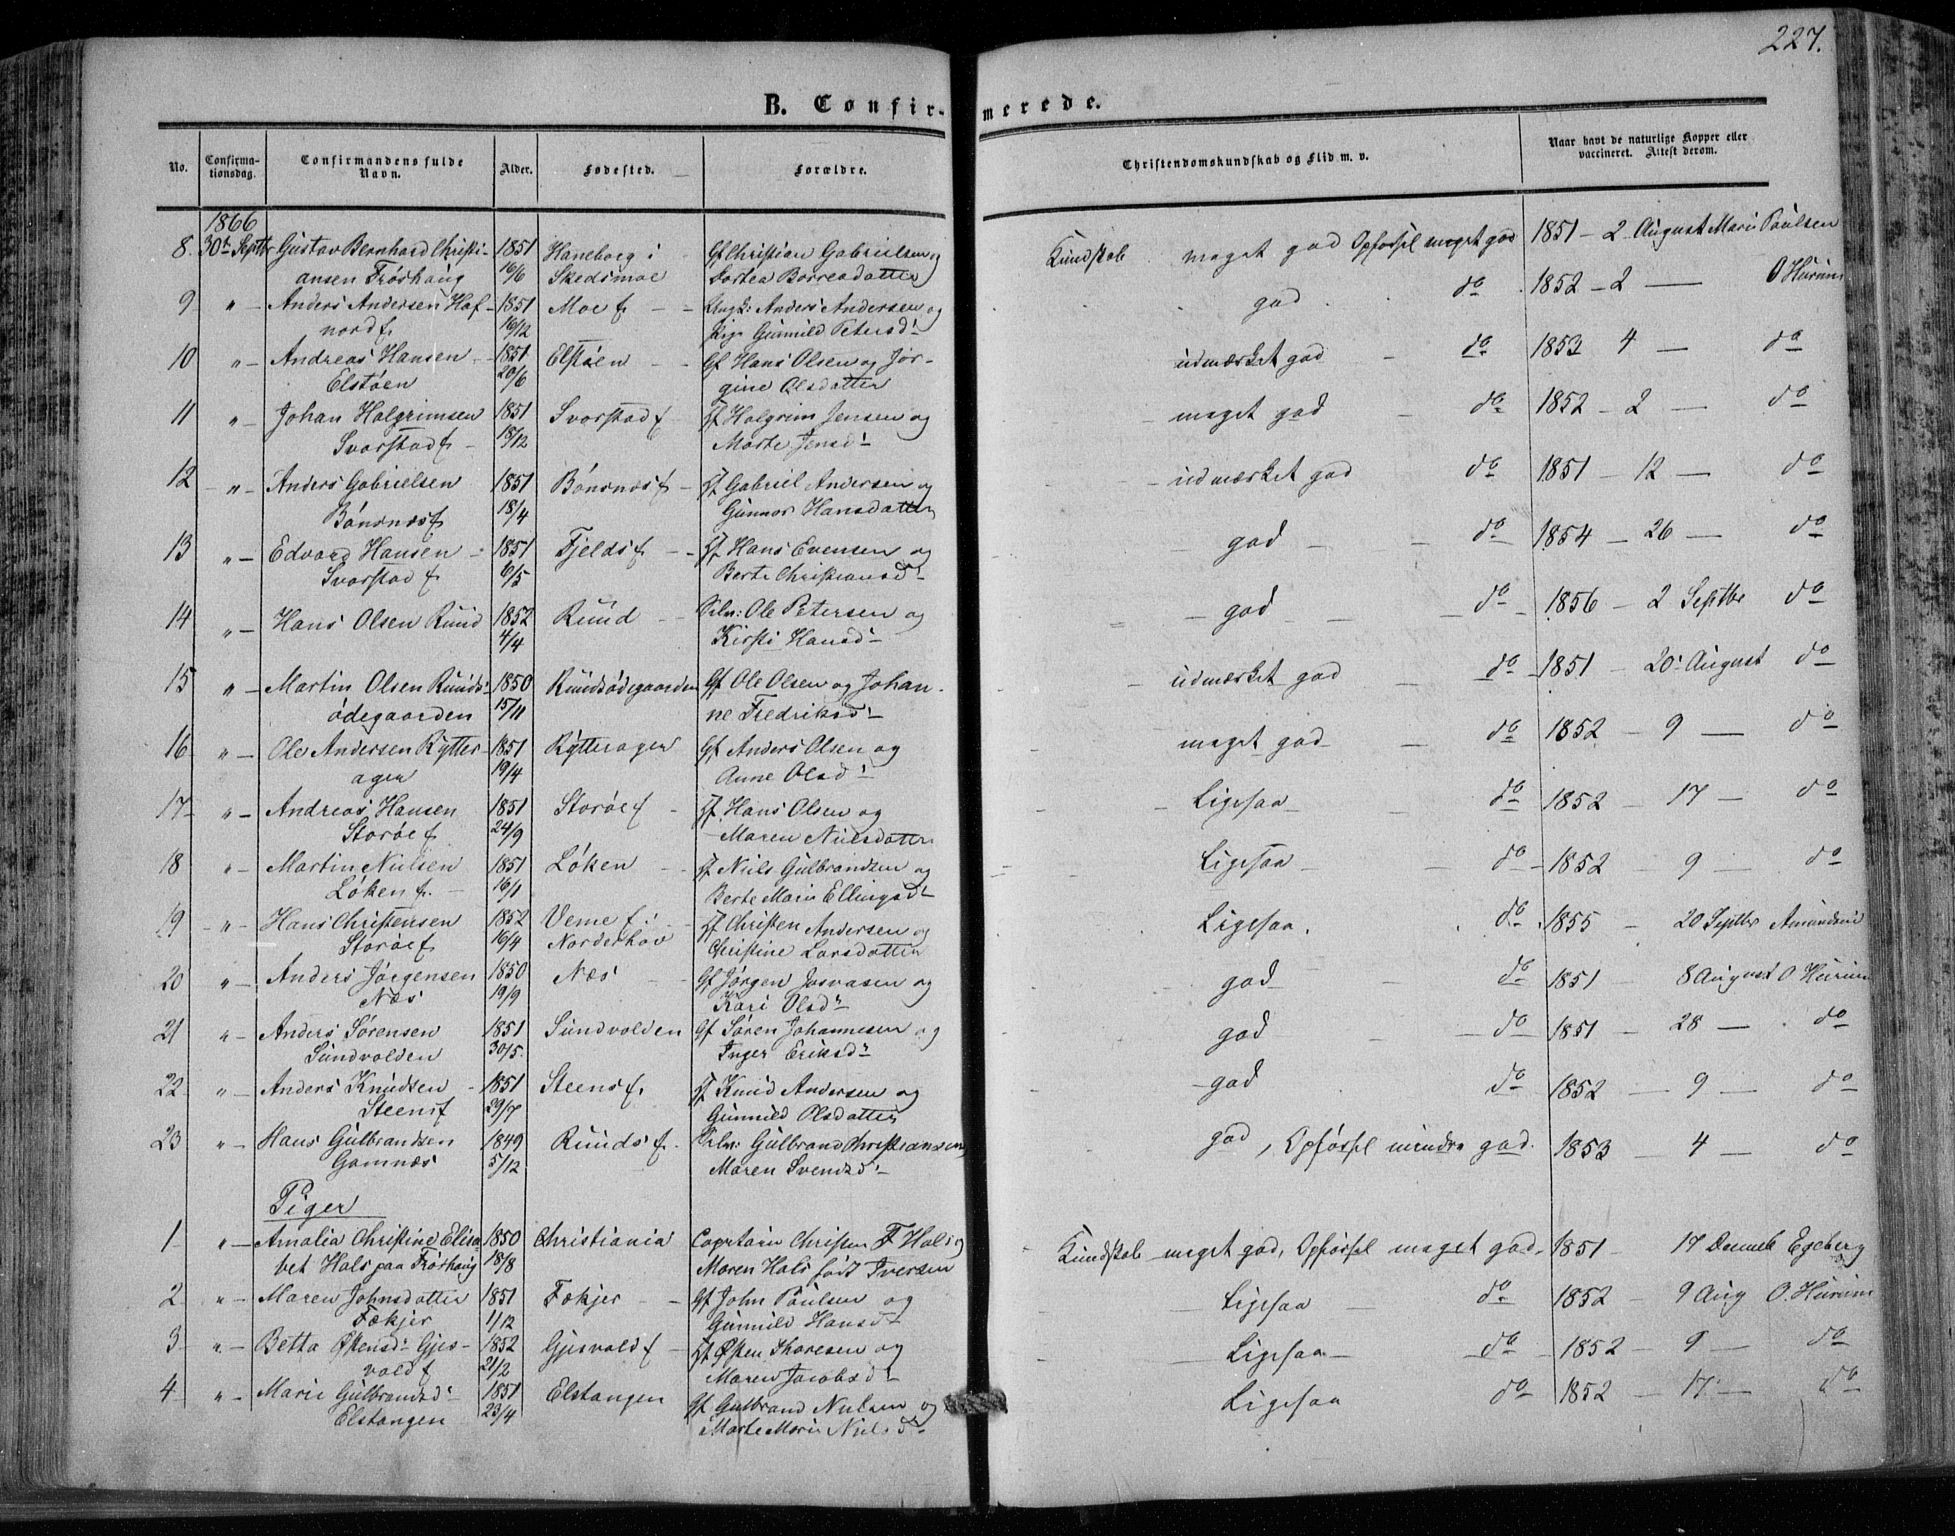 227.
B. Confirmerede.
No. Confirmationsdag. Confirmandens fulde Navn. Alder. Fødested. Forældre. Christendomskundskab og Flid m. v. Naar havt de naturlige Kopper eller vaccineret. Attest derom.
1866
8 30t Septbr Gustav Bernhard Christi- 1851 Haneborg i Gf Christian Gabrielsen og Kundskab meget god Opførsel meget god 1851 – 2 August Mari Paulsen
ansen Frøshaug 16/6 Skedsmoe Dortea Borresdatter
9 " Anders Andersen Haf- 1851 Moe f. Ungk: Anders Andersen og god do 1852 – 2 — O Hurum
nordf. 16/12 Pige Gunnild Petersd:
10 " Andreas Hansen 1851 Elstøen Gf Hans Olsen og Jør- udmærket god do 1853 4 — do
Elstøen 20/6 gine Olsdatter
11 " Johan Halgrimsen 1851 Svarstad f Hf Halgrim Jensen og meget god do 1852 – 2 — do
Svarstad f. 18/12 Marte Jensd:
12 " Anders Gabrielsen 1851 Bønsnæs f Hf Gabriel Andersen og udmærket god do 1851 – 12 — do
Bønsnæsf 18/4 Gunnor Hansdatter
13 " Edvard Hansen 1851 Fjelds f. Hf Hans Evensen og god do 1854 – 26 — do
Svarstad f 6/5 Berte Christiansd:
14 " Hans Olsen Ruud 1852 Ruud Selv: Ole Petersen og god do 1856 – 2 Septbr do
4/4 Kirsti Hansd:
15 " Martin Olsen Ruuds- 1850 Ruudsødegaarden Gf Ole Olsen og Johan- udmærket god do 1851 – 20 August do
ødegaarden 15/11 ne Fredriksd:
16 " Ole Andersen Rytter- 1851 Rytterager Gf Anders Olsen og meget god do 1852 – 9 — do
ager 19/4 Anne Olsd:
17 " Andreas Hansen 1851 Storøe f Hf. Hans Olsen og Ligesaa do 1852 – 17 – do
Storøe f 24/9 Maren Nielsdatter
18 " Martin Nielsen 1851 Løken Hf Niels Gulbrandsen og Ligesaa do 1852 – 9 – do
Løken f. 16/1 Berte Marie Ellingsd:
19 " Hans Christensen 1852 Veme f: Hf Christen Andersen og Ligesaa. do 1855 – 20 Septbr Amundsen
Storøef 16/4 Norderhov Christine Larsdatter
20 " Anders Jørgensen 1850 Næs Gf Jørgen Josvasen og god do 1851 8 August O Hurum
Næs 19/9 Kari Olsd:
21 " Anders Sørensen 1851 Sundvolden Gf Søren Johannesen og god do 1851 – 28 — do
Sundvolden 30/5 Inger Eriksd:
22 " Anders Knudsen 1851 Steensf. Hf Knud Andersen og god do 1852 — 9 — do
Steensf 29/7 Gunnild Olsdatter
23 " Hans Gulbrandsen 1849 Ruuds f. Selv: Gulbrand Christiansen og god, Opførsel mindre god. 1853 – 4 – do
Gomnæs 5/12 Maren Svendsd:
Piger
1 " Amalia Christine Elisa- 1850 Christiania Capitain Christen F Hals og Kundskab meget god, Opførsel meget god. 1851 – 17 Decmb Egeberg
bet Hals paa Frøshaug 18/8 Maren Hals født Iversen
2 " Maren Johnsdatter 1851 Fækjer Gf John Paulsen og Ligesaa do 1852 – 9 Aug O. Hurum
Fækjer 1/12 Gunnild Hansd:
3 " Betta Østensd: Gjes- 1852 Gjesvold f Hf Østen Thoresen og Ligesaa do 1852 – 9 – do
vold f 21/2 Maren Jacobsd:
4 " Marie Gulbrandsd: 1851 Elstangen Gf Gulbrand Nielsen og Ligesaa do 1852 – 17 – do
Elstangen 23/4 Marte Marie Nielsd: